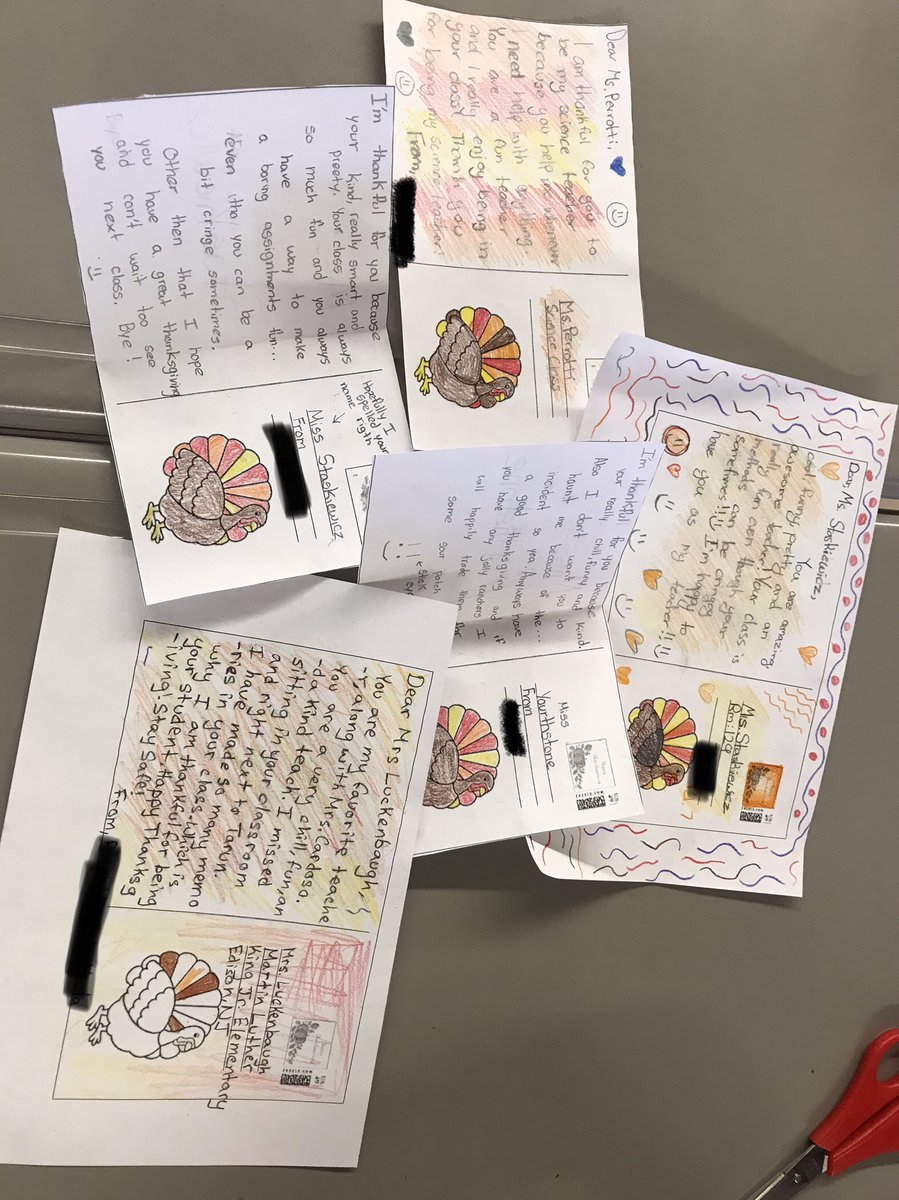 Dear Ms. Perrotti,
I am thankful for you to
be my science teather
because you help me whenever
I need help with anything.
You are a fun teather
and I really enjoy being in
your class! Thank you
for being my science teather!
From,
Ms. Perrotti
Science Class
I'm thankful for you because
your kind, really smart and
preety. Your class is always
so much fun and you always
have a way to make
a boring assignments fun...
even tho you can be a
bit cringe sometimes.
Other then that I hope
you have a great thanksgiving
and can't wait too see
you next class. Bye!
Hopefully I
spelled your
name rigth
Miss Staskiewicz
From
Dear Ms. Staskiewicz,
You are amazing
cool, funny, pretty and an
awesome teacher! Your class is
really fun even though your
methods can be crazy
sometimes!! I'm happy to
have you as my teacher!!
Ms. Staskiewicz
Rm: 129
ZAZZLE.COM
I'm thankful for you because
your really chill, funny and kind.
Also I don't want you to
haunt me because of the...
incident so yea. Anyways have
a good thanksgiving and if
you have any jolly ranchers I
will happily trade them for
some sour patch
Miss
Yourthstone
From
ZAZZLE.COM
Dear Mrs. Luckenbaugh,
You are my favorite teache
-r along with Mr. Cardoso.
You are a very chill, fun, an
-d a kind teach. I missed
sitting in your classroom
and right next to Tarun.
I have made so many memo
-ries in your class. Which is
why I am thankful for being
your student. Happy Thanksg
-iving! Stay Safe!
From,
Mrs. Luckenbaugh
Martin Luther
King Jr. Elementary
Edison, NJ
ZAZZLE.COM